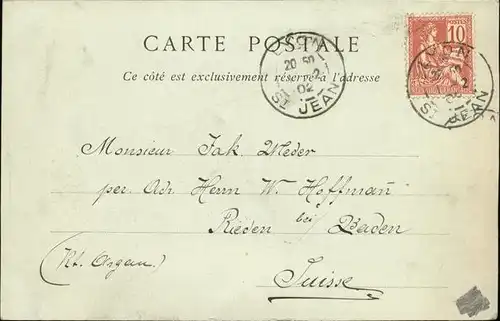 CARTE POSTALE
Ce côté est exclusivement réservé à l'adresse
LYON
20 50
2
02
ST JEAN
POSTES
10
LYON
ST JEAN
Monsieur Jak. Meder
per. Adr. Herrn W. Hoffmañ
Rieden bei/Baden
(Kt. Argau.)
Suisse